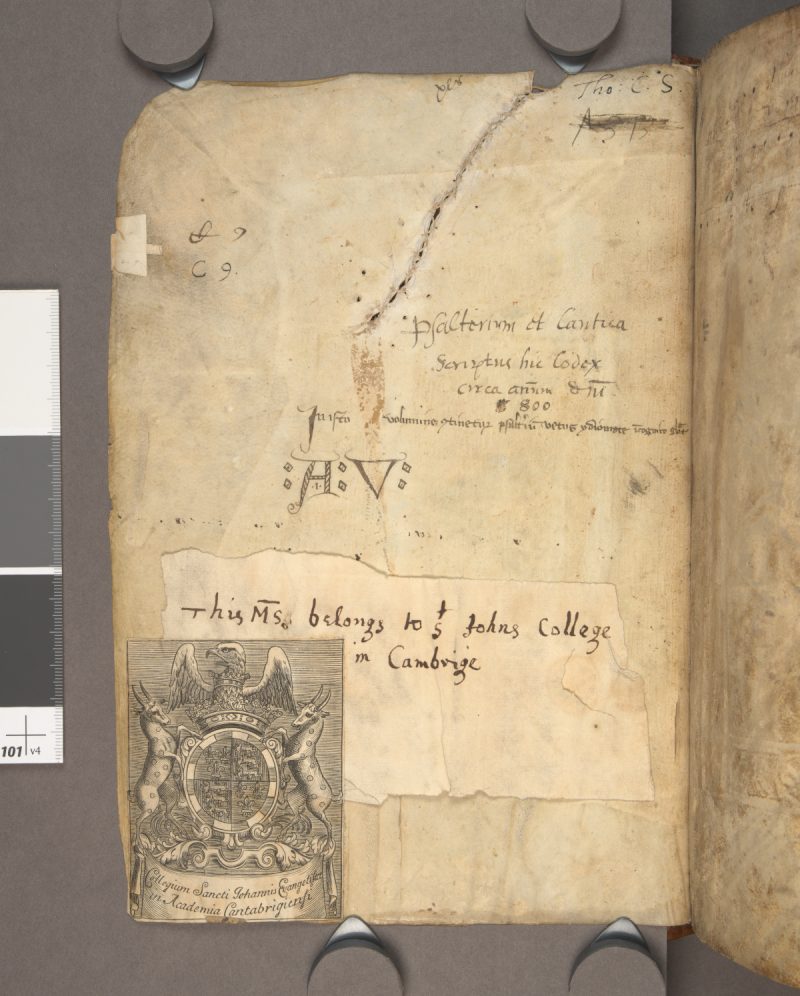 Tho: C. S.
& 9
C 9.
Psalterium et Cantica
Scriptus hic Codex
circa
800
volumine
psalt'iu vetus
A V
This Ms. belongs to St Johns College
in Cambrige
Collegium Sancti Johannis Evangelistæ
in Academia Cantabrigiensi
101 v4